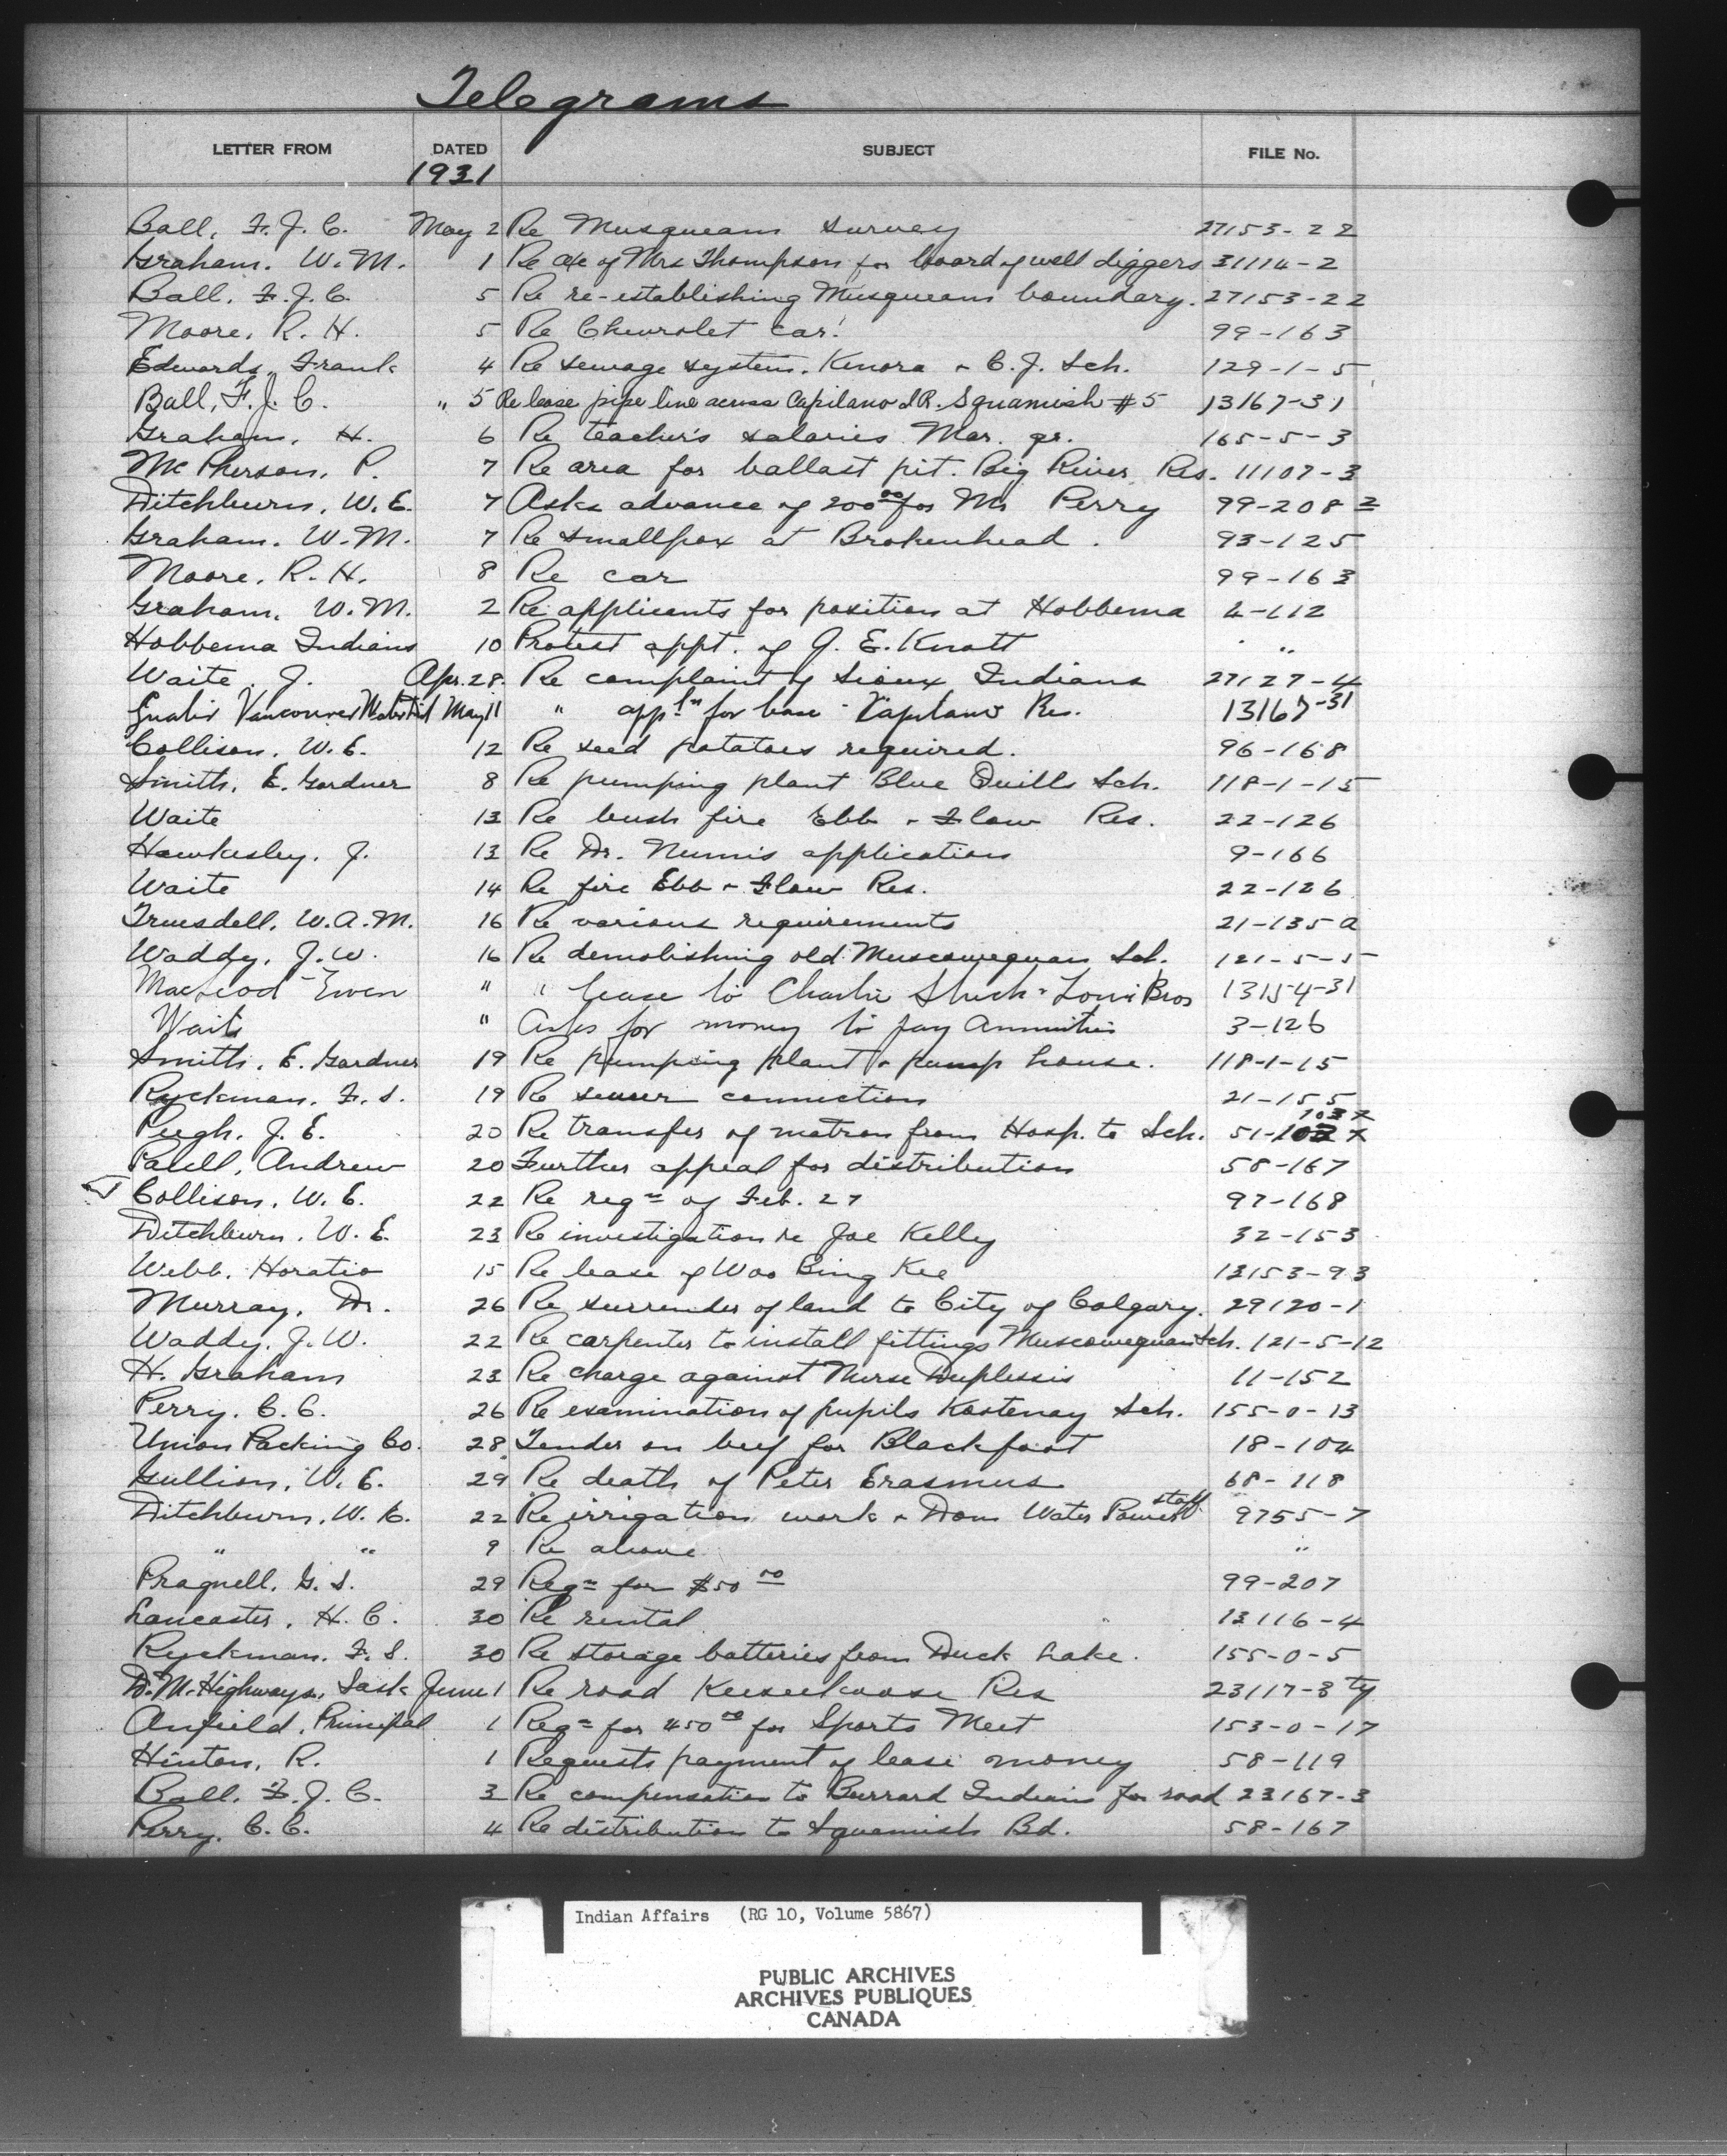 Telegrams
LETTER FROM DATED SUBJECT FILE No.
1931
Ball, F. J. C. May 2 Re Musqueam survey 27153-22
Graham, W. M. 1 Re a/c of Mrs Thompson for board of well diggers 31114-2
Ball, F. J. C. 5 Re re-establishing Musqueam boundary. 27153-22
Moore, R. H. 5 Re Chevrolet car. 99-163
Edwards, Frank 4 Re sewage system. Kenora & C. J. Sch. 129-1-5
Ball, F. J. C. " 5 Re lease pipe line across Capilano I.R. Squamish #5 13167-31
Graham, H. 6 Re teacher's salaries Mar. qr. 165-5-3
McPherson, P. 7 Re area for ballast pit. Big River Res. 11107-3
Ditchburn, W. E. 7 Asks advance of 200.00 for Mr Perry 99-208 2
Graham, W. M. 7 Re smallpox at Brokenhead. 93-125
Moore, R. H. 8 Re car 99-163
Graham, W. M. 2 Re applicants for position at Hobbema 4-112
Hobbema Indians 10 Protest appt. of J. E. Knott "
Waite, J. Apr. 28. Re complaint of Sioux Indians 27127-4
Vancouver May 11 " appln for lease - Capilano Res. 13167-31
Collison, W. E. 12 Re seed potatoes required. 96-168
Smith, E. Gardner 8 Re pumping plant Blue Quills Sch. 118-1-15
Waite 13 Re bush fire Ebb & Flow Res. 22-126
Hawksley, J. 13 Re Dr. application 9-166
Waite 14 Re fire Ebb & Flow Res. 22-126
Truesdell, W. A. M. 16 Re various requirements 21-135 A
Waddy, J. W. 16 Re demolishing old Muscowequan Sch. 121-5-5
MacLeod Ewen " " lease to Charlie Bros 13154-31
Waite " Asks for money to pay Annuities 3-126
Smith, E. Gardner 19 Re pumping plant & pump house. 118-1-15
Ryckman, F. S. 19 Re sewer connection 21-155
Pugh, J. E. 20 Re transfer of matron from Hosp. to Sch. 51-103 x
Paull, Andrew 20 Further appeal for distribution 58-167
Collison, W. E. 22 Re reqn of Feb. 27 97-168
Ditchburn, W. E. 23 Re investigation re Joe Kelly 32-153
Webb, Horatio 15 Re lease of Woo Bing Kee 13153-93
Murray, Dr. 26 Re surrender of land to City of Calgary. 29120-1
Waddy, J. W. 22 Re carpenter to install fittings Muscowequan Sch. 121-5-12
H. Graham 23 Re charge against Nurse Duplessis 11-152
Perry, C. C. 26 Re examination of pupils Kootenay Sch. 155-0-13
Union Packing Co. 28 Tender on beef for Blackfoot 18-104
Gullion, W. E. 29 Re death of Peter Erasmus 68-118
Ditchburn, W. E. 22 Re irrigation work & Dom Water Power staff 9755-7
" " 9 Re above "
Pragnell, G. S. 29 Reqn for $50.00 99-207
Lancaster, H. C. 30 Re rental 13116-4
Ryckman, F. S. 30 Re storage batteries from Duck Lake. 155-0-5
D. M. Highways, Sask June 1 Re road Keeseekoose Res 23117-3 ty
Anfield, Principal 1 Reqn for 450.00 for Sports Meet 153-0-17
Hinton, R. 1 Requests payment of lease money 58-119
Ball, F. J. C. 3 Re compensation to Burrard Indians for road 23167-3
Perry, C. C. 4 Re distribution to Squamish Bd. 58-167
Indian Affairs (RG 10, Volume 5867)
PUBLIC ARCHIVES
ARCHIVES PUBLIQUES
CANADA